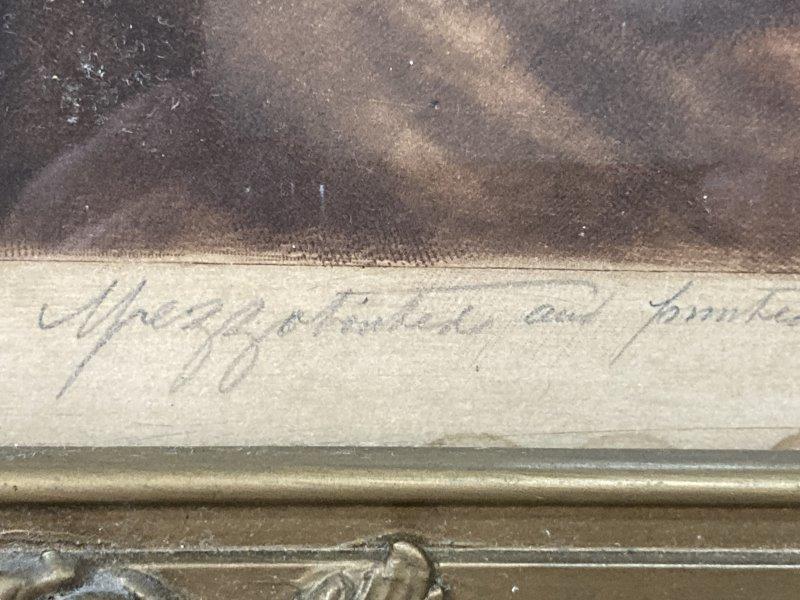 Mezzotinted and printed